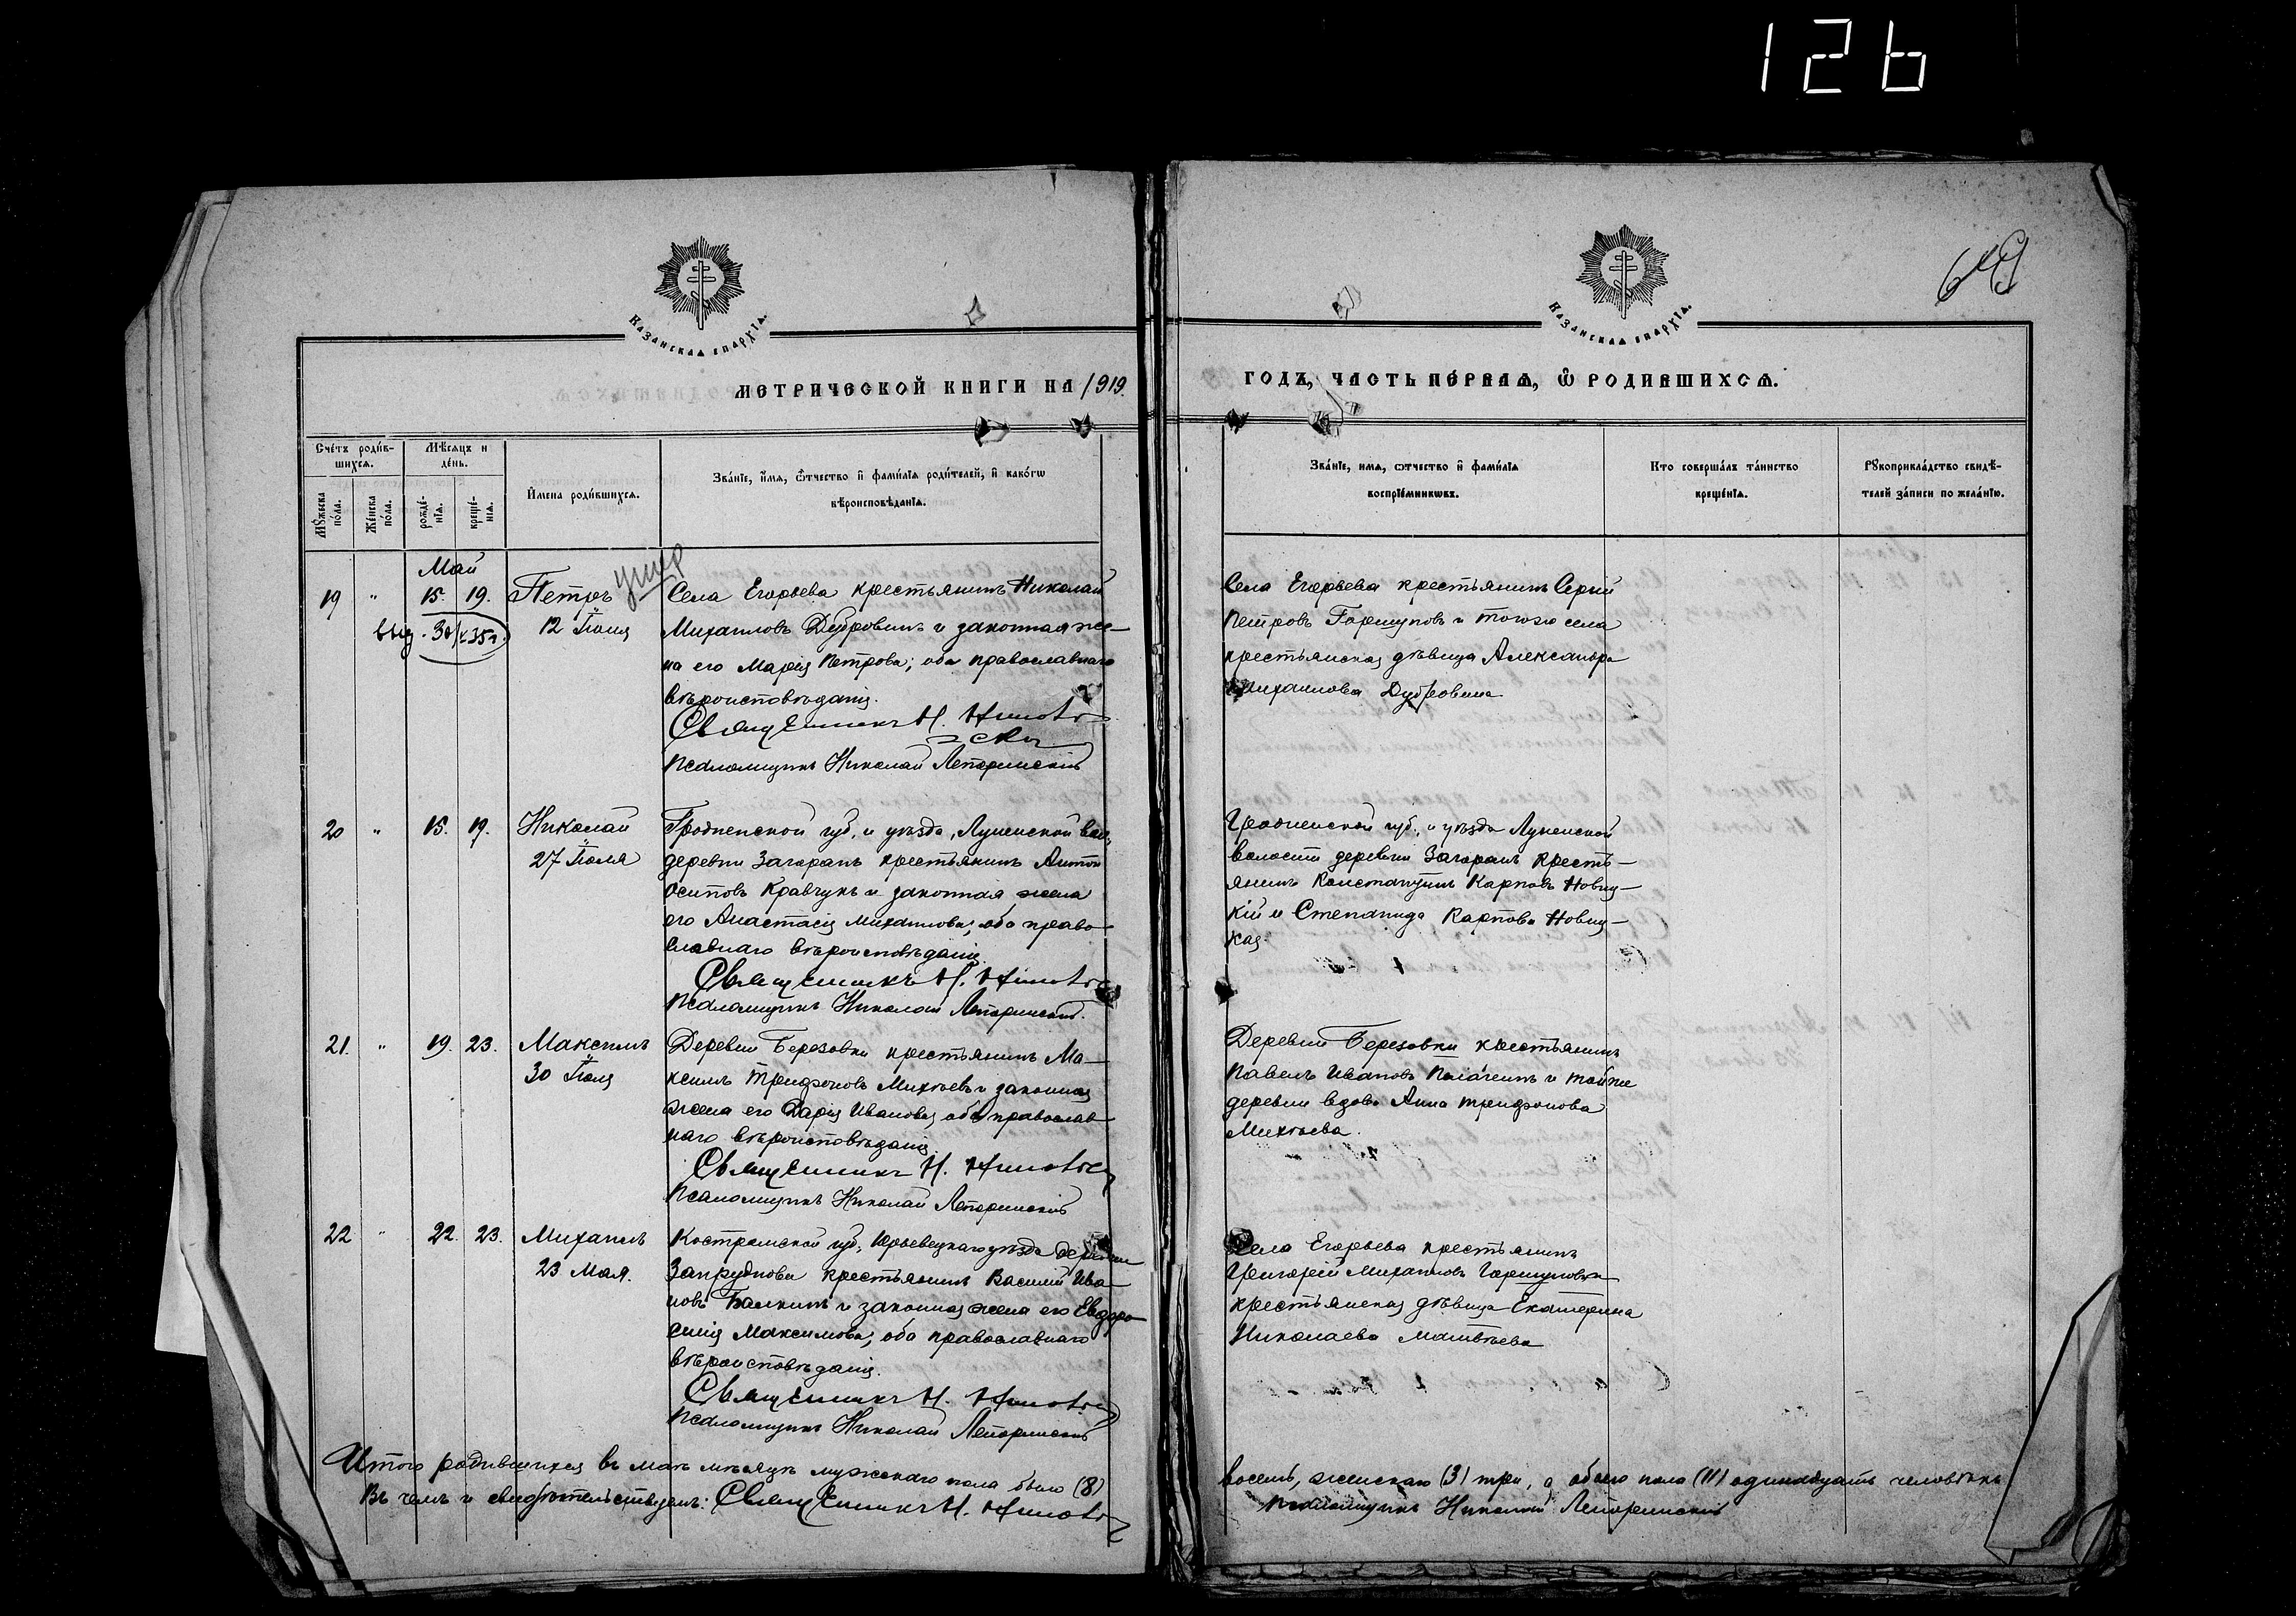 126
649
КАЗАНСКАѦ ЕПАРХІѦ.
КАЗАНСКАѦ ЕПАРХІѦ.
МЕТРИЧЕСКОЙ КНИГИ НА 1919.
ГОДЪ, ЧАСТЬ ПЕ́РВАѦ, Ѡ҆ РОДИВШИХСѦ.
Сче́тъ роди́в-
шихсѧ.
Мѣ́сѧцъ и
де́нь.
Мꙋ́жеска
по́ла.
Же́нска
по́ла.
рожде́-
нїѧ.
креще́-
нїѧ.
И҆мена роди́вшихсѧ.
Зва́нїе, и҆́мѧ, ѻ҆́тчество и҆ фами́лїѧ роди́телей, и҆ како́гѡ
вѣроисповѣ́данїѧ.
Зва́нїе, имѧ, ѻтчество и҆ фами́лїѧ
воспрїе́мникѡвъ.
Кто соверша́лъ та́инство
креще́нїѧ.
Рꙋкоприкла́дство свидѣ́-
телей за́писи по жела́нїю.
Май
19 " 15. 19. Петръ
умер
12 Іюня
выд. 30/I 35 г.
Села Егорьева крестьянинъ Николай
Михаиловъ Дубровинъ и законная же-
на его Марія Петрова; оба православнаго
вѣроисповѣданія.
Священникъ Н.
Псаломщикъ Николай Лепоринскій
Села Егорьева крестьянинъ Сергій
Петровъ Горшуновъ и того же села
крестьянская дѣвица Александра
Михаилова Дубровина
20 " 15. 19. Николай
27 Іюля
Гродненской губ. и уѣзда, Луненской вол.
деревни Загораны крестьянинъ Антон
Осиповъ Кравчукъ и законная жена
его Анастасія Михаилова; оба право-
славнаго вѣроисповѣданія.
Священникъ Н.
Псаломщикъ Николай Лепоринскій.
Гродненской губ. и уѣзда Луненской
волости деревни Загораны кресть-
янинъ Константинъ Карповъ Новиц-
кій и Степанида Карпова Новиц-
кая.
21. " 19. 23. Максимъ
30 Іюля
Деревни Березовки крестьянинъ Ма-
ксимъ Трифоновъ Михѣевъ и законная
жена его Дарія Иванова, оба православ-
наго вѣроисповѣданія.
Священникъ Н.
Псаломщикъ Николай Лепоринскій
Деревни Березовки крестьянинъ
Павелъ Ивановъ и той же
деревни вдова Анна Трифонова
Михѣева.
22 " 22. 23. Михаилъ
23 Мая.
Костромской губ., Юрьевецкаго уѣзда деревни
Запруднова крестьянинъ Василій Ива-
новъ и законная жена его Евдо-
Максимова, оба православнаго
вѣроисповѣданія.
Священникъ Н.
Псаломщикъ Николай Лепоринскій
Села Егорьева крестьянинъ
Григорій Михаиловъ Горшуновъ и
крестьянская дѣвица Екатерина
Николаева Матвѣева
Итого родившихся въ маѣ мѣсяцѣ мужескаго пола было (8)
восемь, женскаго (3) три, а обоего пола (11) одинадцать человѣкъ
Въ чемъ и свидѣтельствуемъ: Священникъ Н.
Псаломщикъ Николай Лепоринскій